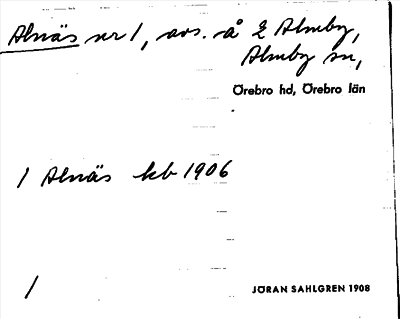 Alnäs nr 1, avs. å 2 Almby,
Almby sn,
Örebro hd, Örebro län
1 Alnäs kb 1906
1
JÖRAN SAHLGREN 1908